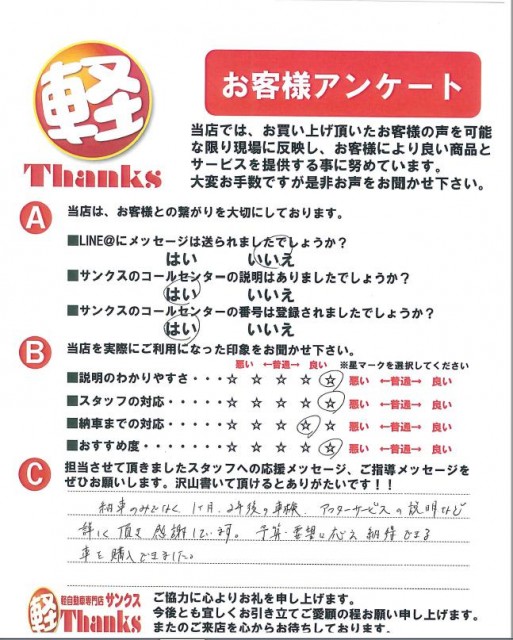 軽
Thanks
お客様アンケート
当店では、お買い上げ頂いたお客様の声を可能
な限り現場に反映し、お客様により良い商品と
サービスを提供する事に努めています。
大変お手数ですが是非お声をお聞かせ下さい。
A 当店は、お客様との繋がりを大切にしております。
■LINE@にメッセージは送られましたでしょうか？
はい いいえ
■サンクスのコールセンターの説明はありましたでしょうか？
はい いいえ
■サンクスのコールセンターの番号は登録されましたでしょうか？
はい いいえ
B 当店を実際にご利用になった印象をお聞かせ下さい。
悪い ←普通→ 良い ※星マークを選択してください
■説明のわかりやすさ・・・・☆ ☆ ☆ ☆ ☆ 悪い ←普通→ 良い
■スタッフの対応・・・・・・☆ ☆ ☆ ☆ ☆ 悪い ←普通→ 良い
■納車までの対応・・・・・・☆ ☆ ☆ ☆ ☆ 悪い ←普通→ 良い
■おすすめ度・・・・・・・・☆ ☆ ☆ ☆ ☆ 悪い ←普通→ 良い
C 担当させて頂きましたスタッフへの応援メッセージ、ご指導メッセージを
ぜひお願いします。沢山書いて頂けるとありがたいです！！
納車のみでなく 1ヶ月、2年後の車検、アフターサービスの説明など
詳しく頂き感謝しています。予算・要望に応え納得できる
車を購入できました。
軽 軽自動車専門店 サンクス
Thanks
ご協力に心よりお礼を申し上げます。
今後とも宜しくお引き立てご愛願の程お願い申し上げます。
またのご来店を心からお待ちしております.